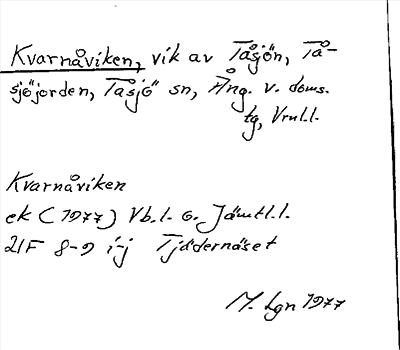 Kvarnåviken, vik av Tåsjön, Tå-
sjöjorden, Tåsjö sn, Ång. v. doms.
tg, Vrnl.l.
Kvarnåviken
ek (1977) Vb.l. o. Jämtl.l.
21F 8-9 i-j Tjädernäset
M. Lgn 1977